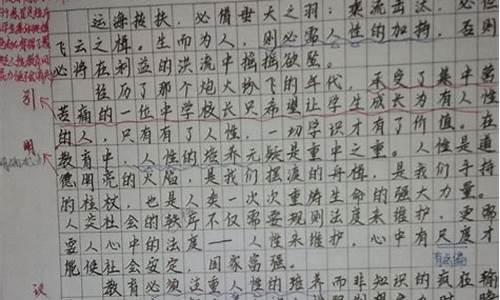 运海接扶，必借垂天之羽；乘流击汰，必仗
飞云之楫。生而为人，则必需人性的加持，否则
必将在利益的洪流中摇摇欲坠。
经历了那个炮火纷飞的年代，承受了集中营
苦痛的一位中学校长只希望让学生成长为有人性
的人，只有有了人性，一切学识才有了价值。在
教育中，人性的培养无疑是重中之重。人性是道
德闪亮的火焰，是我们摆渡的舟楫，是我们手持
的柱杖，也是人类一次次重铸生命的强大力量。
人类社会的秩序不仅需要规则法度来维护，更需
要人心中的法度——人性来维护，心中有尺度才
能使社会安定、国家富强。
教育必须注重人性的培养而非知识的疯狂
引
明
议